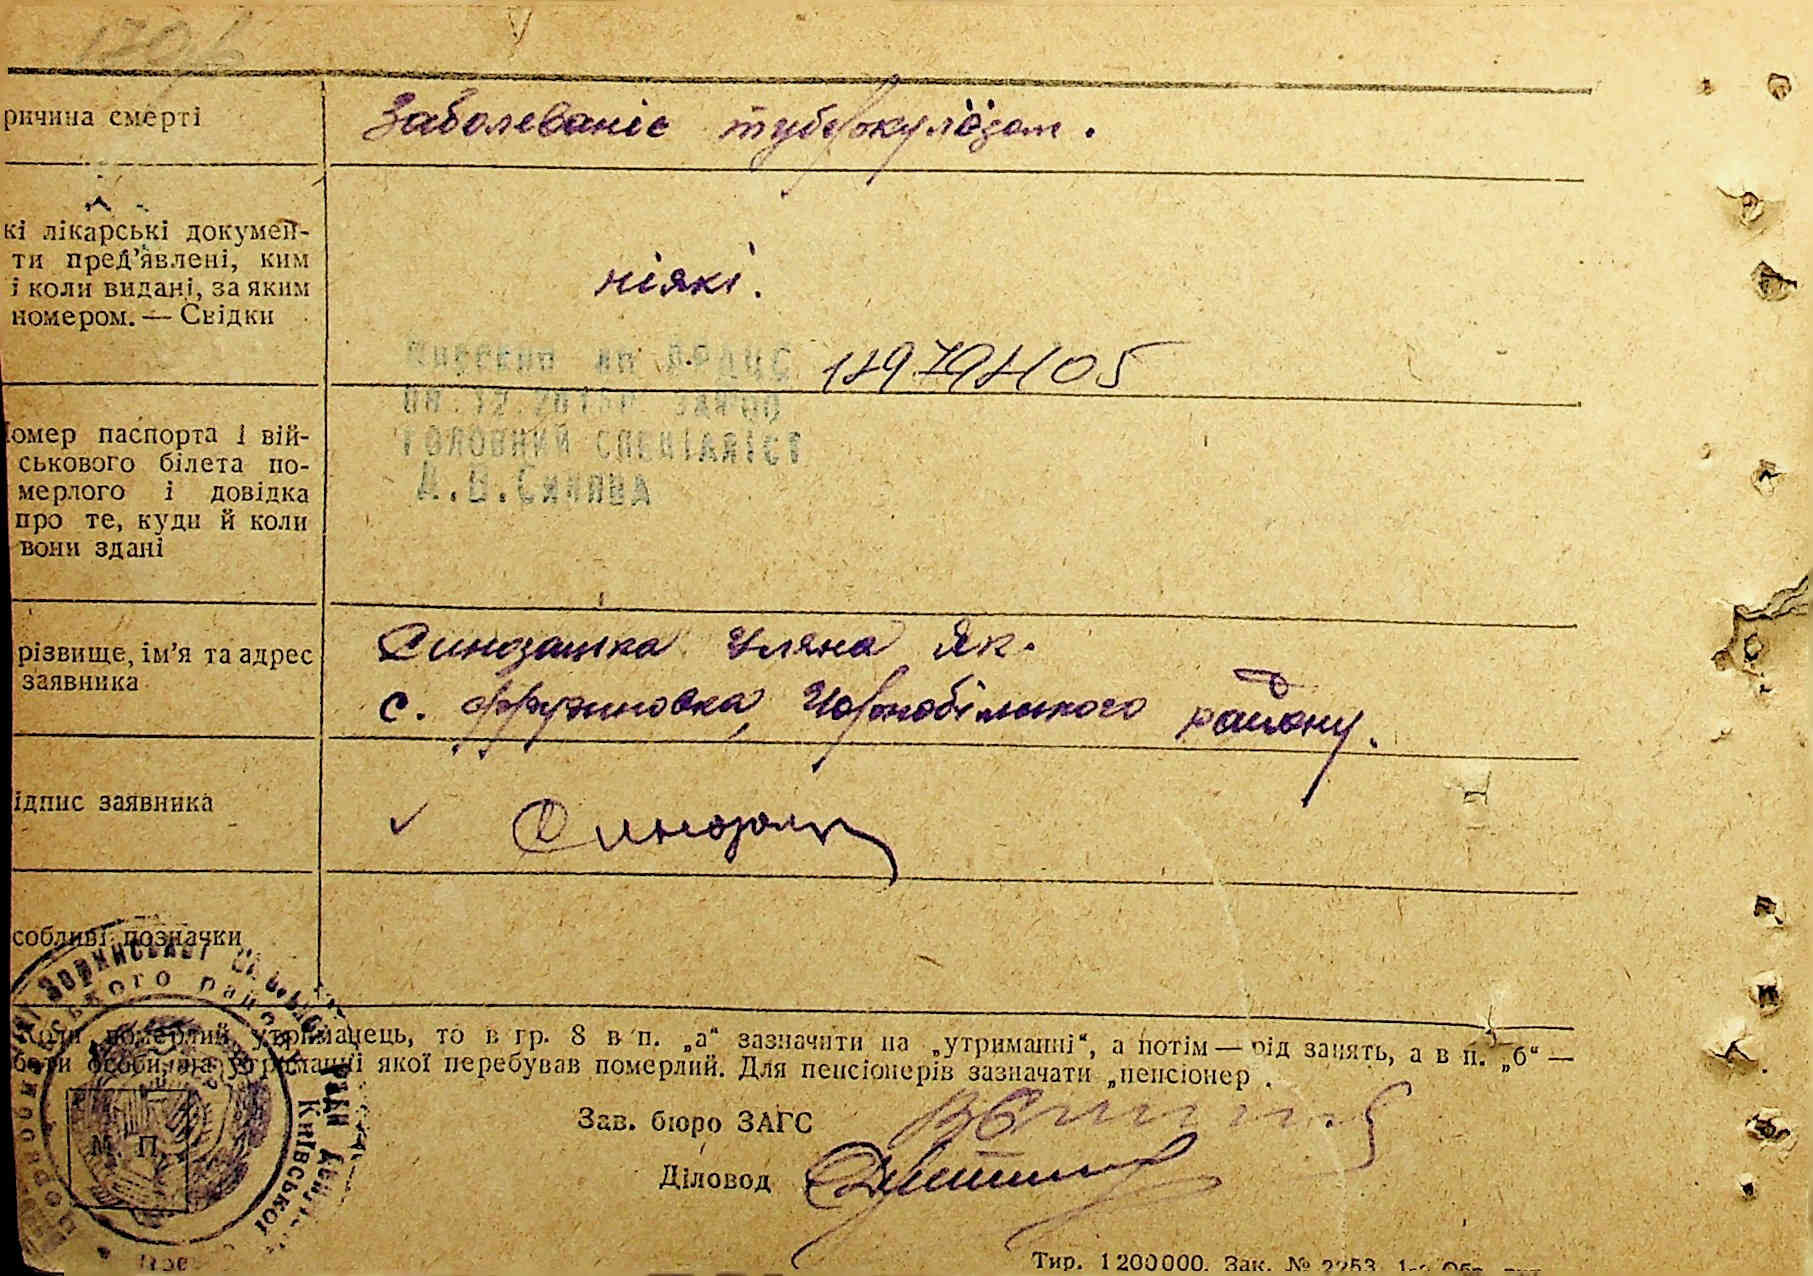 ричина смерті
Заболеваніє туберкульозом.
кі лікарські докумен-
ти пред'явлені, ким
і коли видані, за яким
номером. — Свідки
ніякі.
ДРАЦС
12.
ГОЛОВНИЙ СПЕЦІАЛІСТ
омер паспорта і вій-
ськового білета по-
мерлого і довідка
про те, куди й коли
вони здані
різвище, ім'я та адрес
заявника
Синозацка Уляна Як.
с. Фрузиновка, Чорнобільского району.
ідпис заявника
особливі позначки
Коли померлий утриманець, то в гр. 8 в п. „а“ зазначити на „утриманні“, а потім — рід занять, а в п. „б“ —
особи, на утриманні якої перебував померлий. Для пенсіонерів зазначати „пенсіонер
Зав. бюро ЗАГС
Діловод
М. П.
Зоринської
Київської
Тир. 1200000. Зак. № 2253.